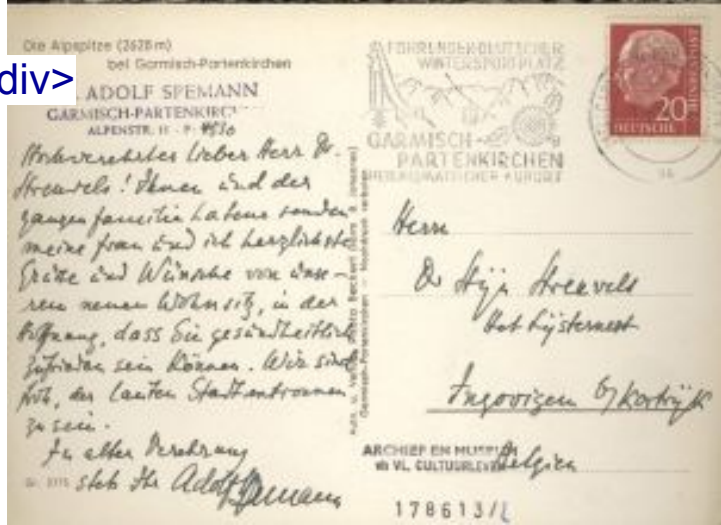 Die Alpspitze (2628 m)
bei Garmisch-Partenkirchen
div>
ADOLF SPEMANN
GARMISCH-PARTENKIRCH
ALPENSTR. 11 - P.
Hochverehrter lieber Herr Dr.
Streuvels! Ihnen und der
ganzen Familie Lateur senden
meine Frau und ich herzlichste
Grüße und Wünsche von unse-
rem neuen Wohnsitz, in der
Hoffnung, dass Sie gesundheitlich
zufrieden sein können. Wir sind
froh, der lauten Stadt entronnen
zu sein.
In alter Verehrung
stets Ihr Adolf Spemann
FÜHRENDER DEUTSCHER
WINTERSPORTPLATZ
GARMISCH-
PARTENKIRCHEN
HEILKLIMATISCHER KURORT
20
DEUTSCHE
BUNDESPOST
Herrn
Dr Stijn Streuvels
Het Lijsternest
Ingooigem b/ Kortrijk
Belgien
ARCHIEF EN MUSEUM
VL. CULTUURLEVEN
178613/